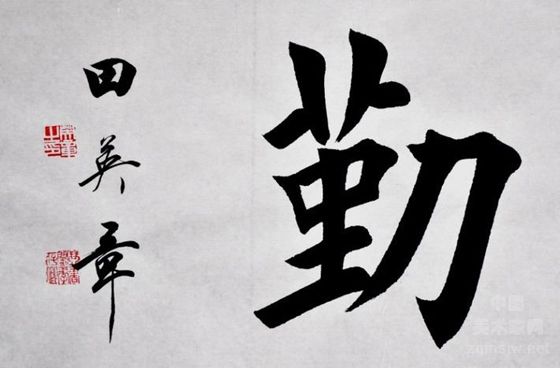 勤
田英章
中国
美术家网
zgmsjw.net